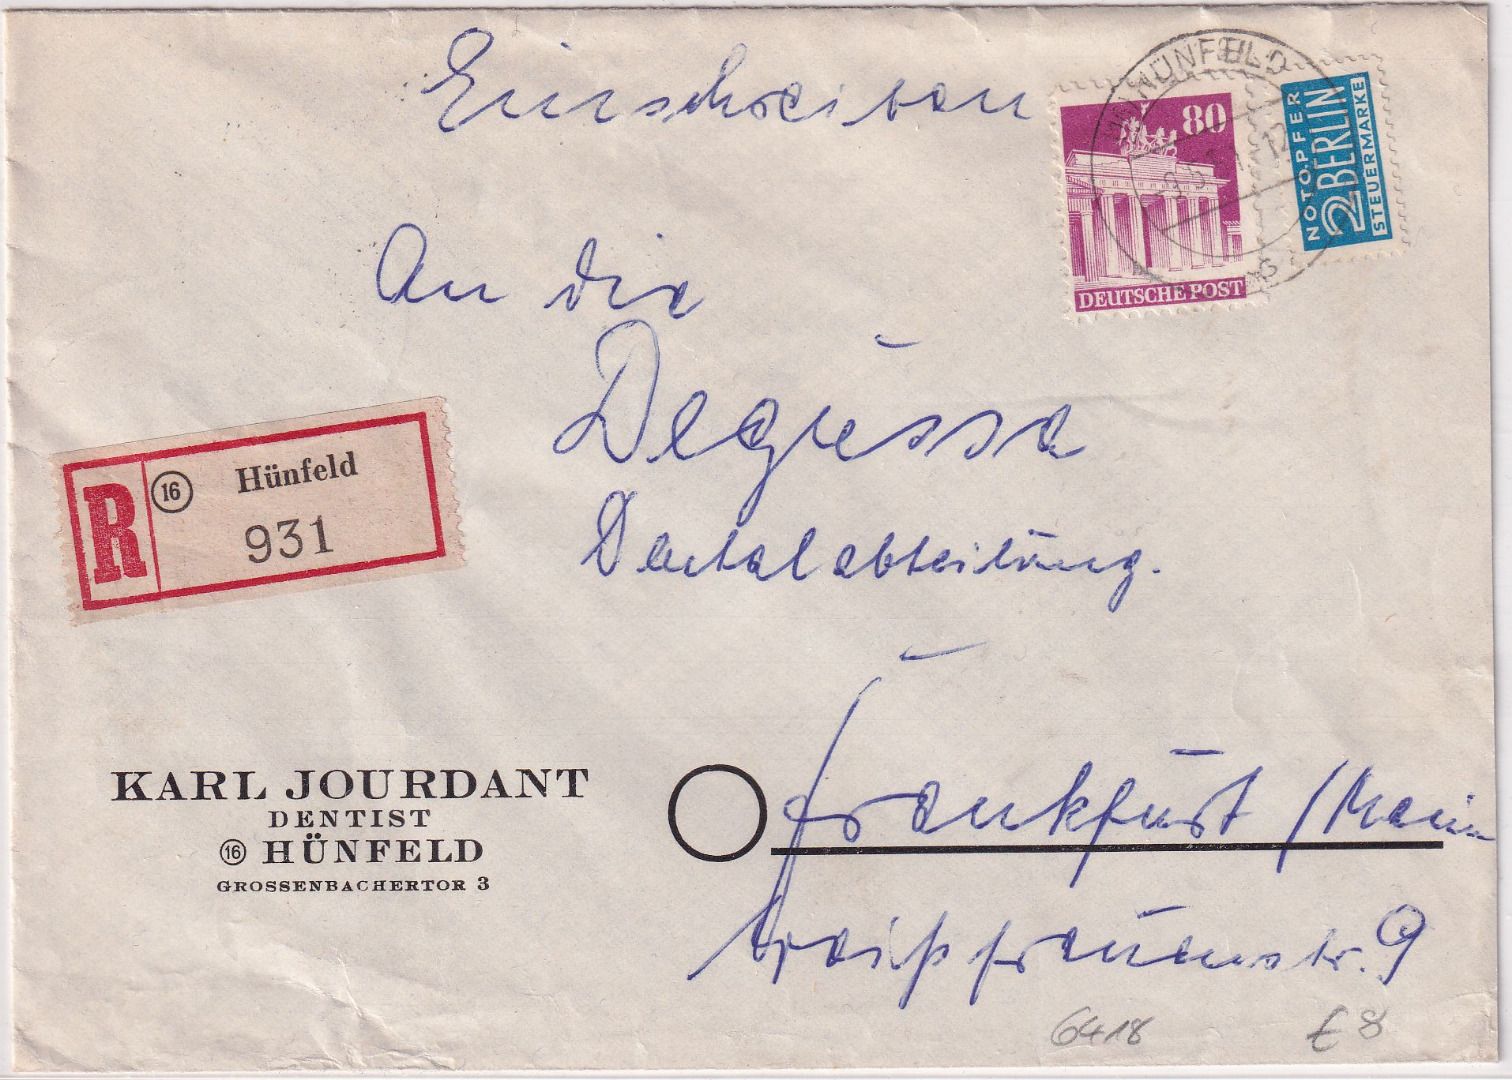 Einschreiben
HÜNFELD
80
DEUTSCHE POST
NOTOPFER
2 BERLIN
STEUERMARKE
An die
Degussa
Dentalabteilung.
R
16 Hünfeld
931
KARL JOURDANT
DENTIST
16 HÜNFELD
GROSSENBACHERTOR 3
Frankfurt / Main
Weißfrauenstr. 9
6418
£ 8